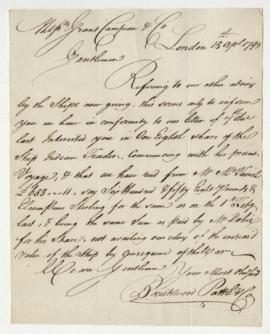 Mess.rs Grant Campion & Co
London 15th Apl 179
Gentlemen
Refering to our other advices
by the Ships now going, this serves only to inform
you we have in conformity to our letter of
last Interested you in One Eighth share of the
Ship Indian Trader, Commencing with her present
Voyage, & that we have rec'd from Mr
£658 - 11, say Six Hundred & fifty Eight Pounds &
Eleven Sterling for the same as on the 1
last, & being the same Sum as paid by Mr
for his Share, not availing ourselves of the encreased
value of the Ship by consequence of the War
We are Gentlemen
Your Most